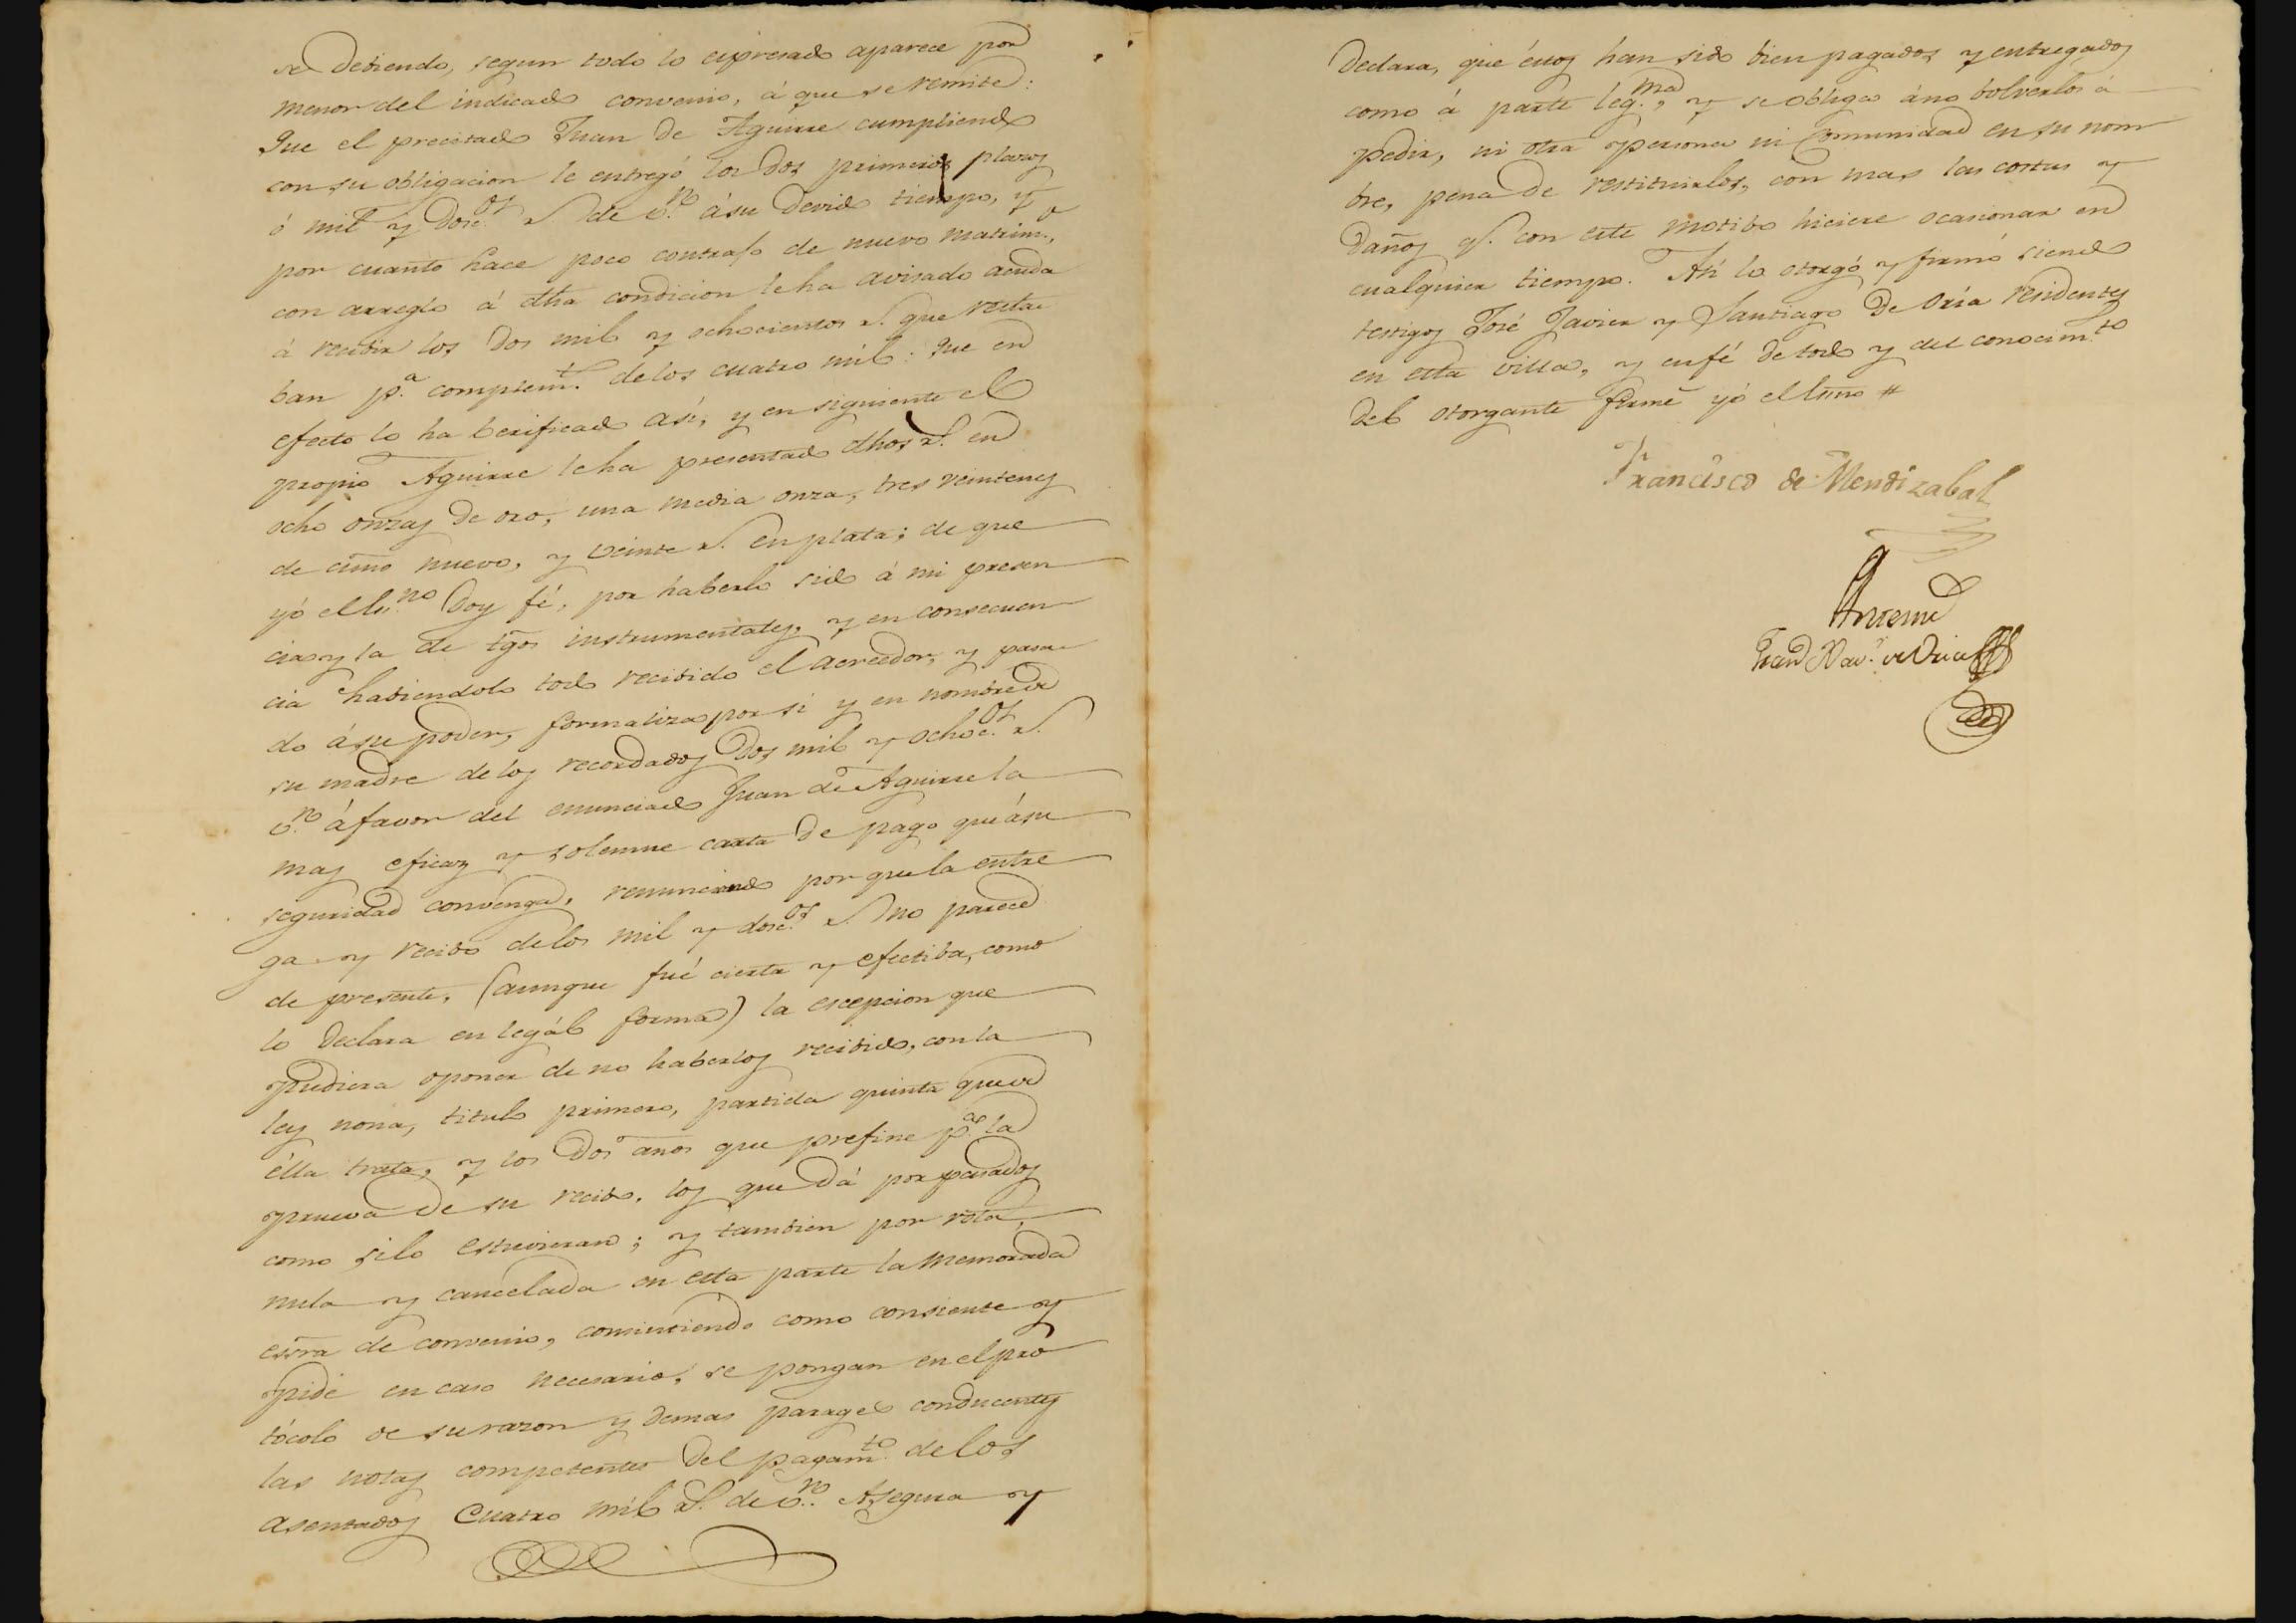 se debiendo, segun todo lo expresado aparece por
menor del indicado convenio, á que se remite:
Que el precitado Juan de Aguirre cumpliendo
con su obligacion le entregó los dos primeros plazos
ó mil y dosc.os r.s de v.n á su devido tiempo, y
por cuanto hace poco contrajo de nuevo matrim.o,
con arreglo á dha condicion le ha avisado acuda
á recibir los dos mil y ochocientos r.s que resta-
ban p.a complem.to de los cuatro mil: Que en
efecto lo ha berificado asi, y en siguiente el
propio Aguirre le ha presentado dhos r.s en
ocho onzas de oro, una media onza, tres veintenes
de cuño nuevo, y veinte r.s en plata; de que
yó el Es.no doy fé, por haberlo sido á mi presen
cia y la de tgos instrumentales, y en consecuen
cia habiendolo todo recibido el acreedor, y pasa-
do á su poder, formaliza por si y en nombre de
su madre de los recordados dos mil y ochoc.os r.s
v.n á favor del enunciado Juan de Aguirre la
mas eficaz y solemne carta de pago que á su
seguridad convenga, renunciando por que la entre
ga y recibo de los mil y dosc.os r.s no parece
de presente, (aunque fué cierta y efectiba, como
lo declara en legál forma) la escepcion que
pudiera oponer de no haberlos recibido, con la
ley nona, titulo primero, partida quinta que de
élla trata, y los dos años que prefine p.a la
prueva de su recibo, los que dá por pasados
como si lo estuvieran; y tambien por rota,
nula y cancelada en esta parte la memorada
essra de convenio, consintiendo como consiente y
pide en caso necesario, se pongan en el pro
tócolo de su razon y demas parages conducentes
las notas competentes del pagam.to de los
asentados Cuatro mil r.s de v.n Asegura y
Declara, que éstos han sido bien pagados y entregados
como á parte leg.ma, y se obliga á no bolverlos á
pedir, ni otra persona ni Comunidad en su nom
bre, pena de restituirlos, con mas las costas y
daños q.e con este motibo hiciere ocasionar en
cualquier tiempo. Asi lo otorgó y firmó siendo
testigos José Javier y Santiago de Oria residentes
en esta villa, y en fé de todo y del conocim.to
del otorgante firmé yó el Esno #
Francisco de Mendizabal
Antemi
Fran.co Xav.r de Oria